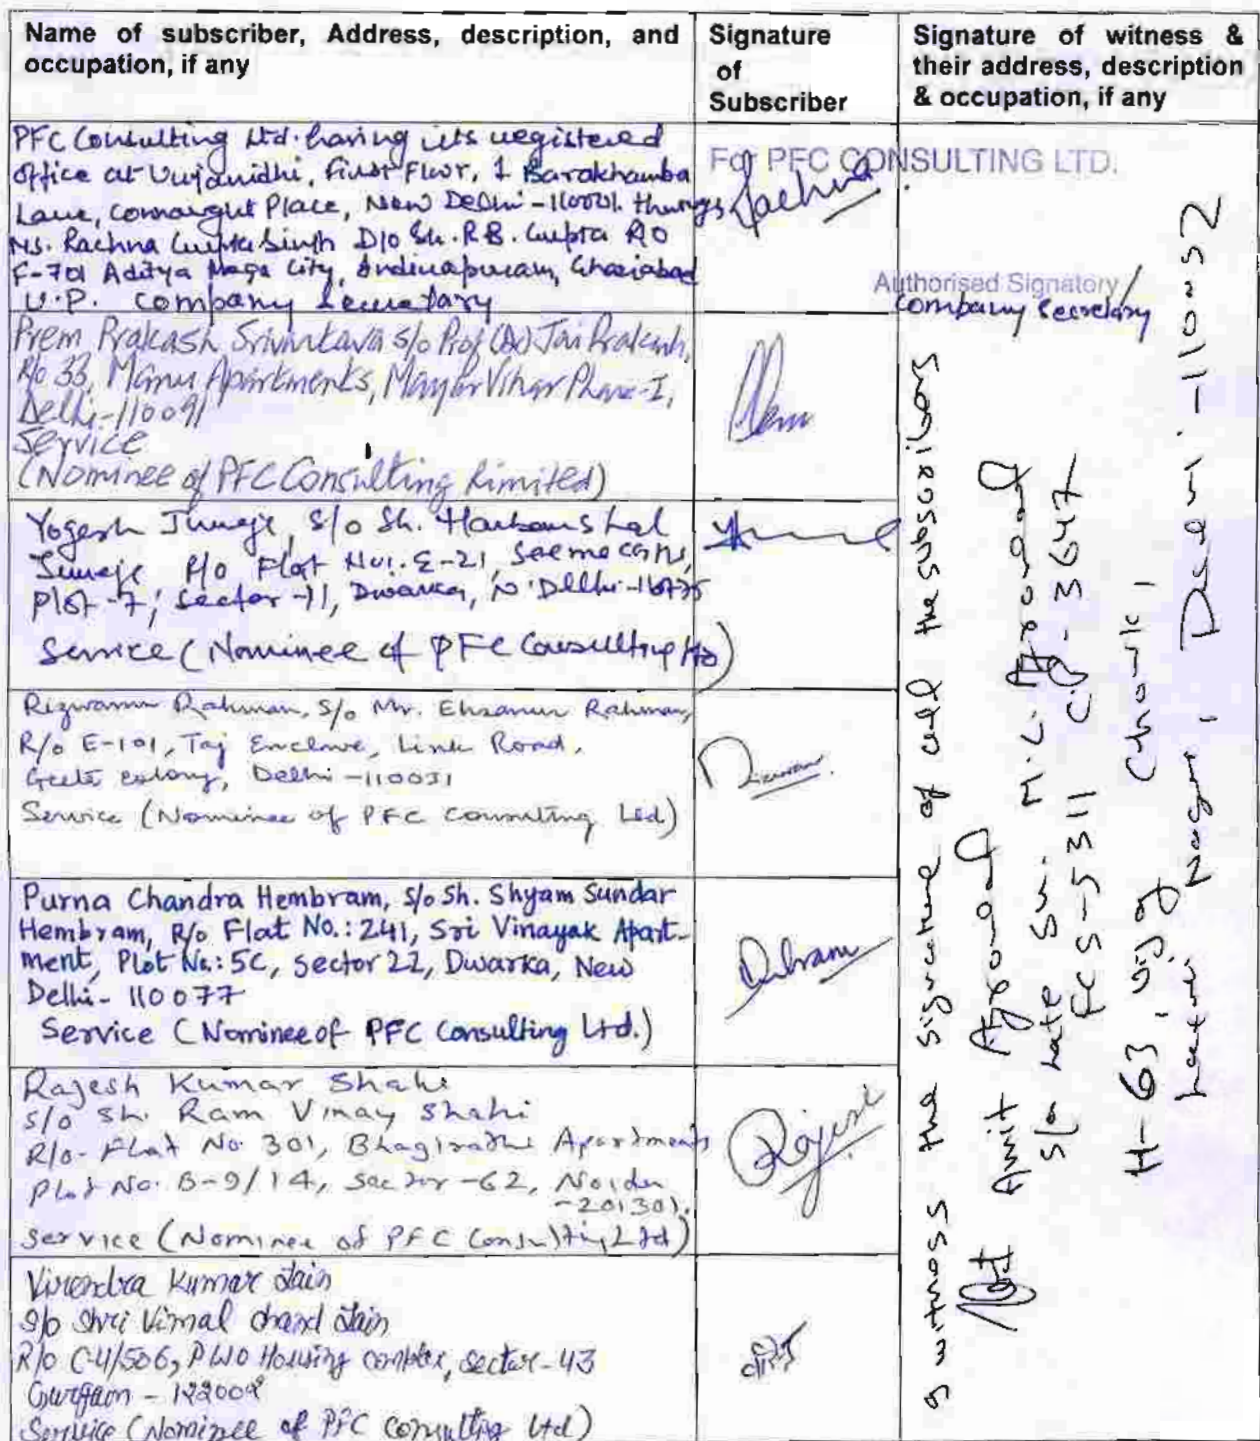 Name of subscriber, Address, description, and
occupation, if any
Signature
of
Subscriber
Signature of witness &
their address, description
& occupation, if any
PFC Consulting Ltd. having its registered
office at Urjanidhi, First Floor, 1 Barakhamba
Lane, Connaught Place, New Delhi-110001. through
Ms. Rachna Gupta Singh D/o Sh. R.B. Gupta R/o
F-701 Aditya Mega City, Indirapuram, Ghaziabad
U.P. Company Secretary
For PFC CONSULTING LTD.
Rachna
Authorised Signatory/
Company Secretary
Prem Prakash Srivastava s/o Prof (Dr) Jai Prakash,
R/o 33, Manu Apartments, Mayur Vihar Phase-I,
Delhi-110091
Service
(Nominee of PFC Consulting Limited)
Yogesh Juneja, S/o Sh. Harbans Lal
Juneja R/o Flat No. E-21,
Plot-7, Sector-11, Dwarka, N. Delhi-110075
Service (Nominee of PFC Consulting Ltd)
Rizwanur Rahman, S/o Mr. Ehsanur Rahman,
R/o E-101, Taj Enclave, Link Road,
Geeta Colony, Delhi-110031
Service (Nominee of PFC Consulting Ltd)
Rizwan
Purna Chandra Hembram, S/o Sh. Shyam Sundar
Hembram, R/o Flat No.: 241, Sri Vinayak Apart-
ment, Plot No.: 5C, Sector 22, Dwarka, New
Delhi- 110077
Service (Nominee of PFC Consulting Ltd.)
Rajesh Kumar Shahi
S/o Sh. Ram Vinay Shahi
R/o- Flat No 301, Bhagirathi Apartments
Plot No. B-9/14, Sector-62, Noida
-201301.
Service (Nominee of PFC Consulting Ltd)
Rajesh
Virendra Kumar Jain
S/o Shri Vimal Chand Jain
R/o C-4/506, PWO Housing Complex, Sector-43
Gurgaon - 122002
Service (Nominee of PFC Consulting Ltd)
I witness the signature of all the subscribers
Amit Agrawal
S/o Late Shri. M.C. Agrawal
FCS-5311 C.P-3647
H-63, Vijay Chowk,
Laxmi Nagar, Delhi-110092